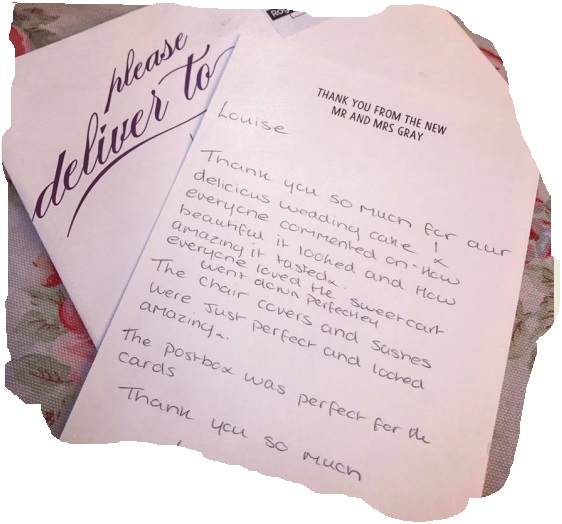 please
deliver to
THANK YOU FROM THE NEW
MR AND MRS GRAY
Louise
Thank you so much for our
delicious wedding cake !
everyone commented on how
beautiful it looked and how
amazing it tasted
everyone loved the sweetcart
went down perfectley
The chair covers and sashes
were just perfect and looked
amazing
The postbox was perfect for the
cards
Thank you so much